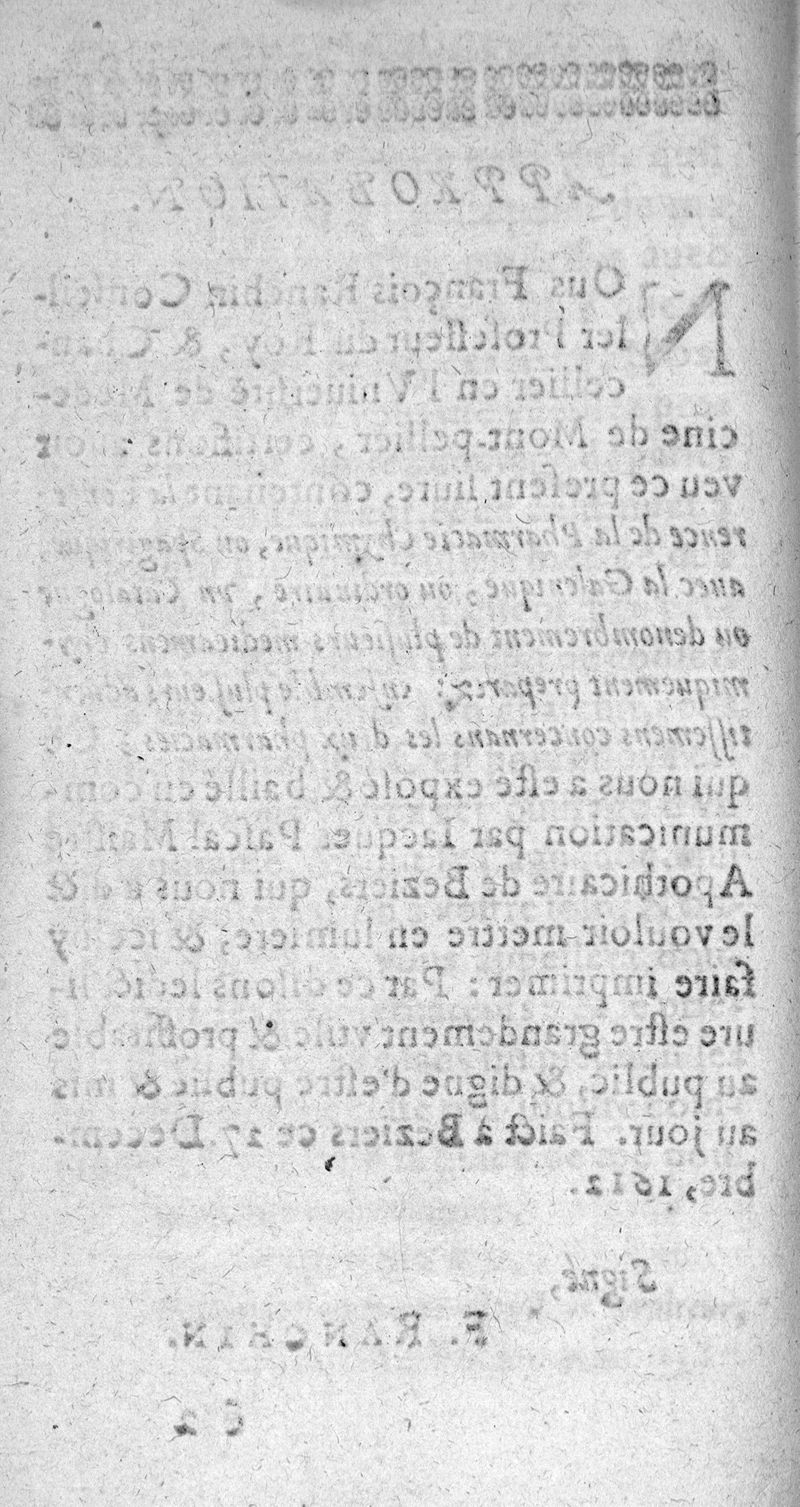 APPROBATION.
NOus François Ranchin Conseil-
ler Professeur du Roy, & Chan-
cellier en l'Vniuersité de Mede-
cine de Mont-pellier, certifions auoir
veu ce present liure, contenant la confe-
rence de la Pharmacie Chymique, ou Spagirique,
auec la Galenique, ou ordinaire, vn Catalogue
ou denombrement de plusieurs medicamens chy-
miquement preparez: ensemble plusieurs aduer-
tissemens concernans les deux pharmacies;
qui nous a esté exposé & baillé en com-
munication par Iacques Pascal Maistre
Apothicaire de Beziers, qui nous a dit
le vouloir mettre en lumiere, & iceluy
faire imprimer: Par ce disons ledict li-
ure estre grandement vtile & proffitable
au public, & digne d'estre publié & mis
au jour. Faict à Beziers ce 17. Decem-
bre, 1612.
Signé,
F. RANCHIN.
C 2